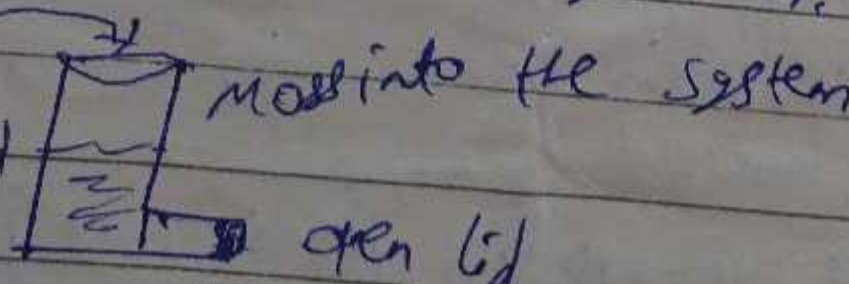 Mass into the system
open lid